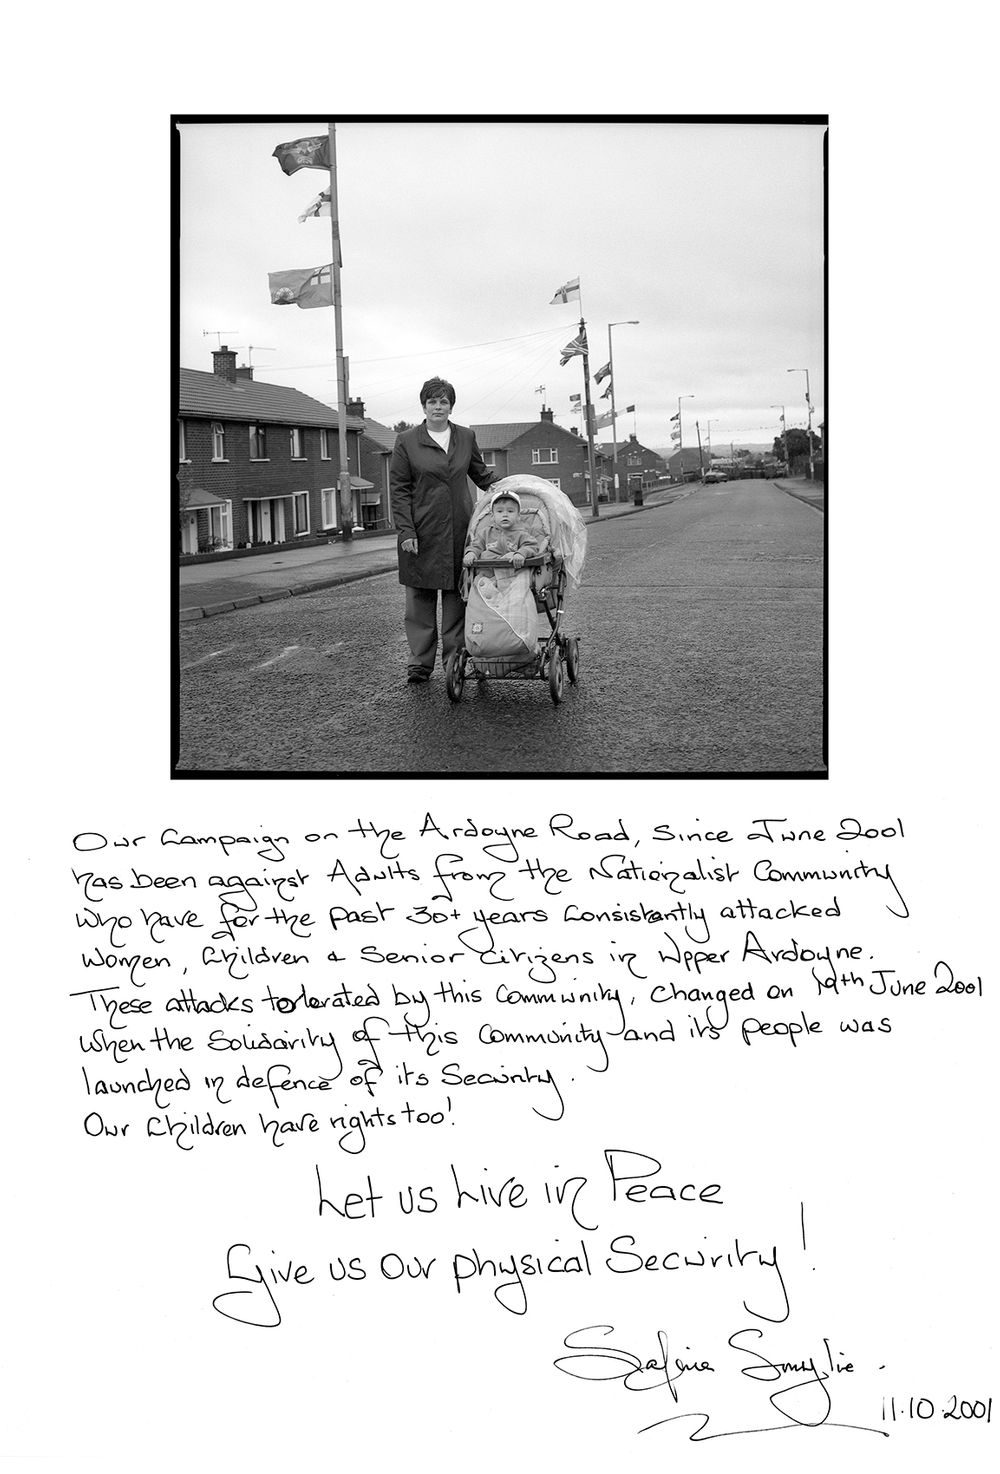 Our Campaign on the Ardoyne Road, since June 2001
has been against Adults from the Nationalist Community
who have for the past 30+ years consistantly attacked
women, children & senior citizens in Upper Ardoyne.
These attacks tolerated by this community, changed on 19th June 2001
when the solidarity of this community and its people was
launched in defence of its security.
Our children have rights too!
Let us Live in Peace
Give us our physical Security!
Smylie.
11.10.2001